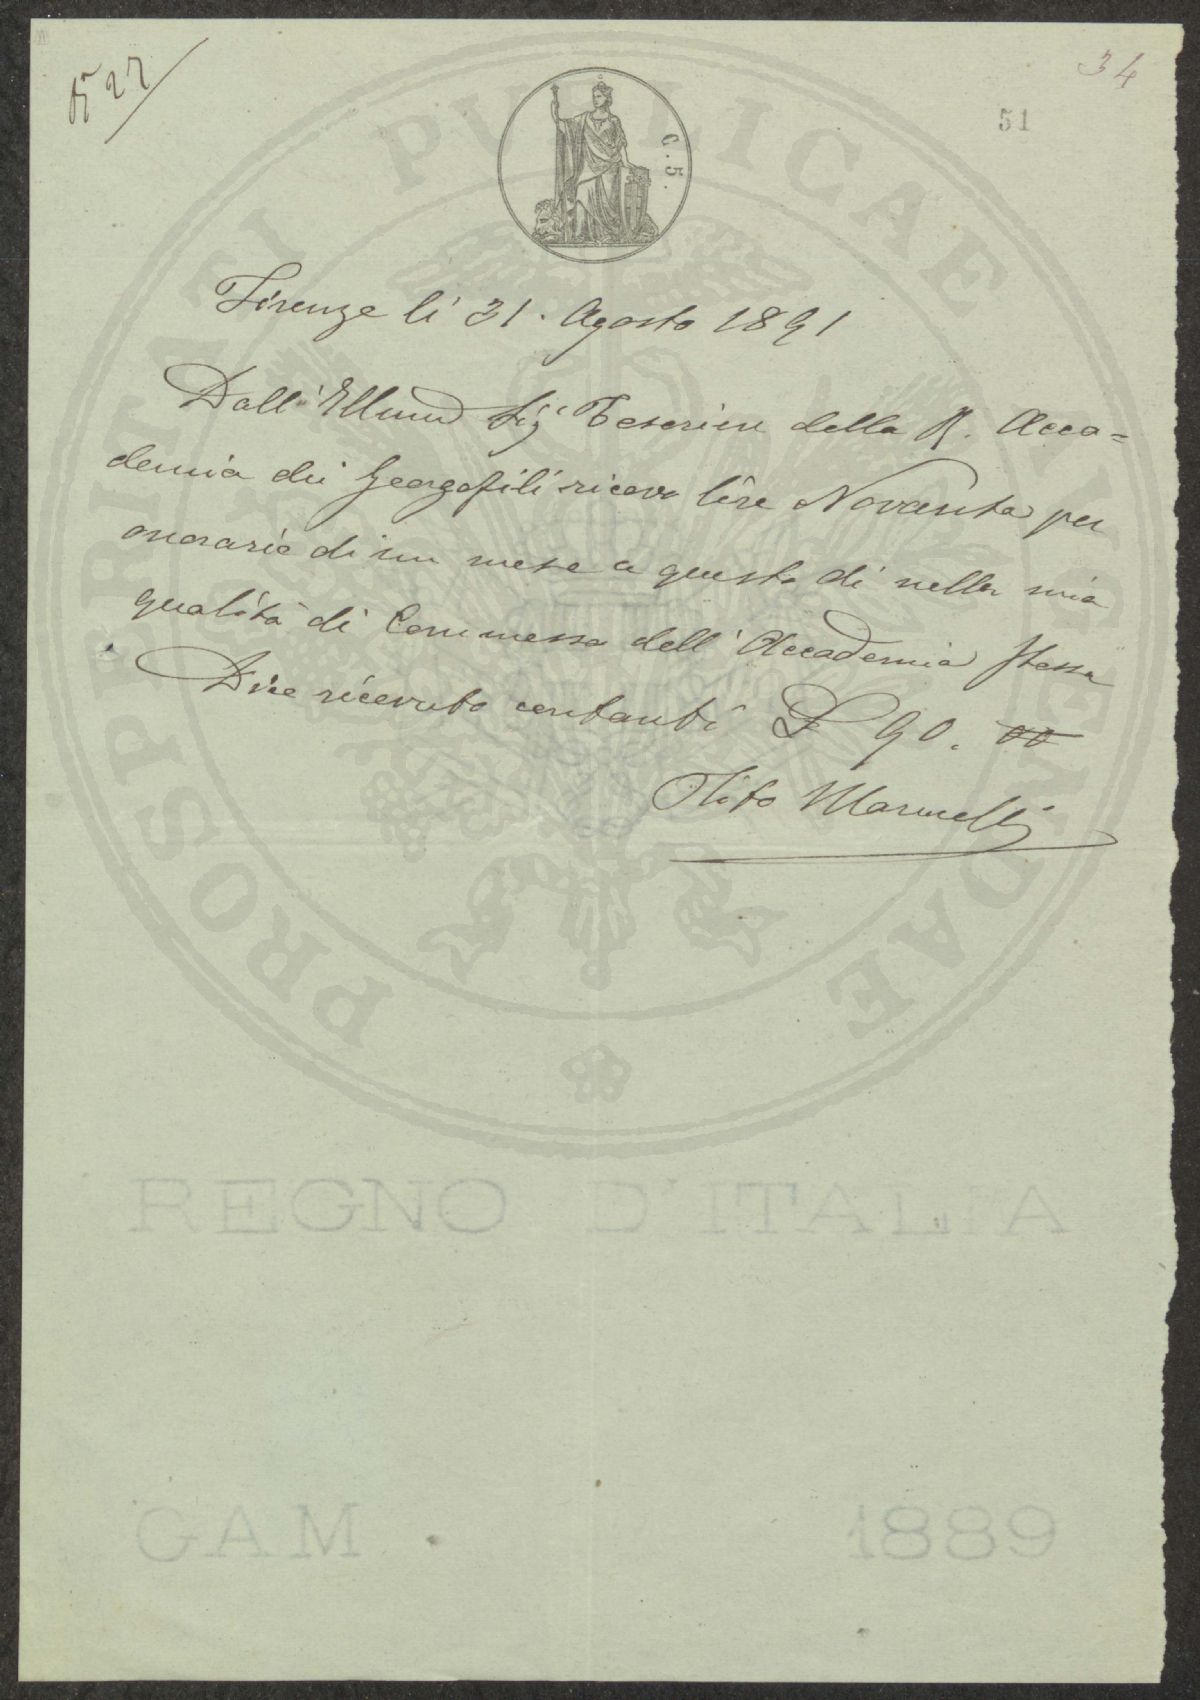 N° 27
34
51
C. 5.
Firenze li 31. Agosto 1891
Dall' Illmo Sig Tesorien della R. Acca=
demia dei Georgofili ricevo lire Novanta per
onorario di un mese a questo dì nella mia
qualità di Commesso dell' Accademia stessa
Dico ricevuto contanti L 90. 00
Tito Marucelli
PROSPERITATI PUBLICAE AUGENDAE
REGNO D'ITALIA
GAM 1889